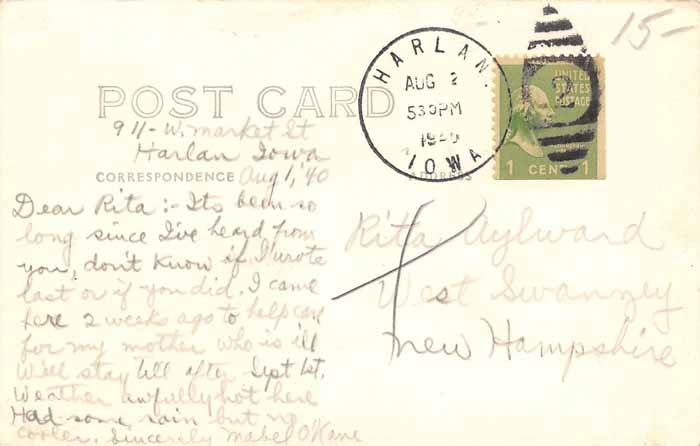 15-
HARLAN.
AUG 2
530PM
IOWA
UNITED
STATES
POSTAGE
1 CENT 1
POST CARD
911-W. market St
Harlan Iowa
CORRESPONDENCE Aug 1, '40
ADDRESS
Dear Rita:- Its been so
long since I've heard from
you, don't know if I wrote
last or if you did. I came
here 2 weeks ago to help care
for my mother who is ill
Will stay till after Sept 1st.
Weather awfully hot here
Had some rain but no
cooler. Sincerely Mabel O'Kane
Rita Aylward
West Swanzey
New Hampshire